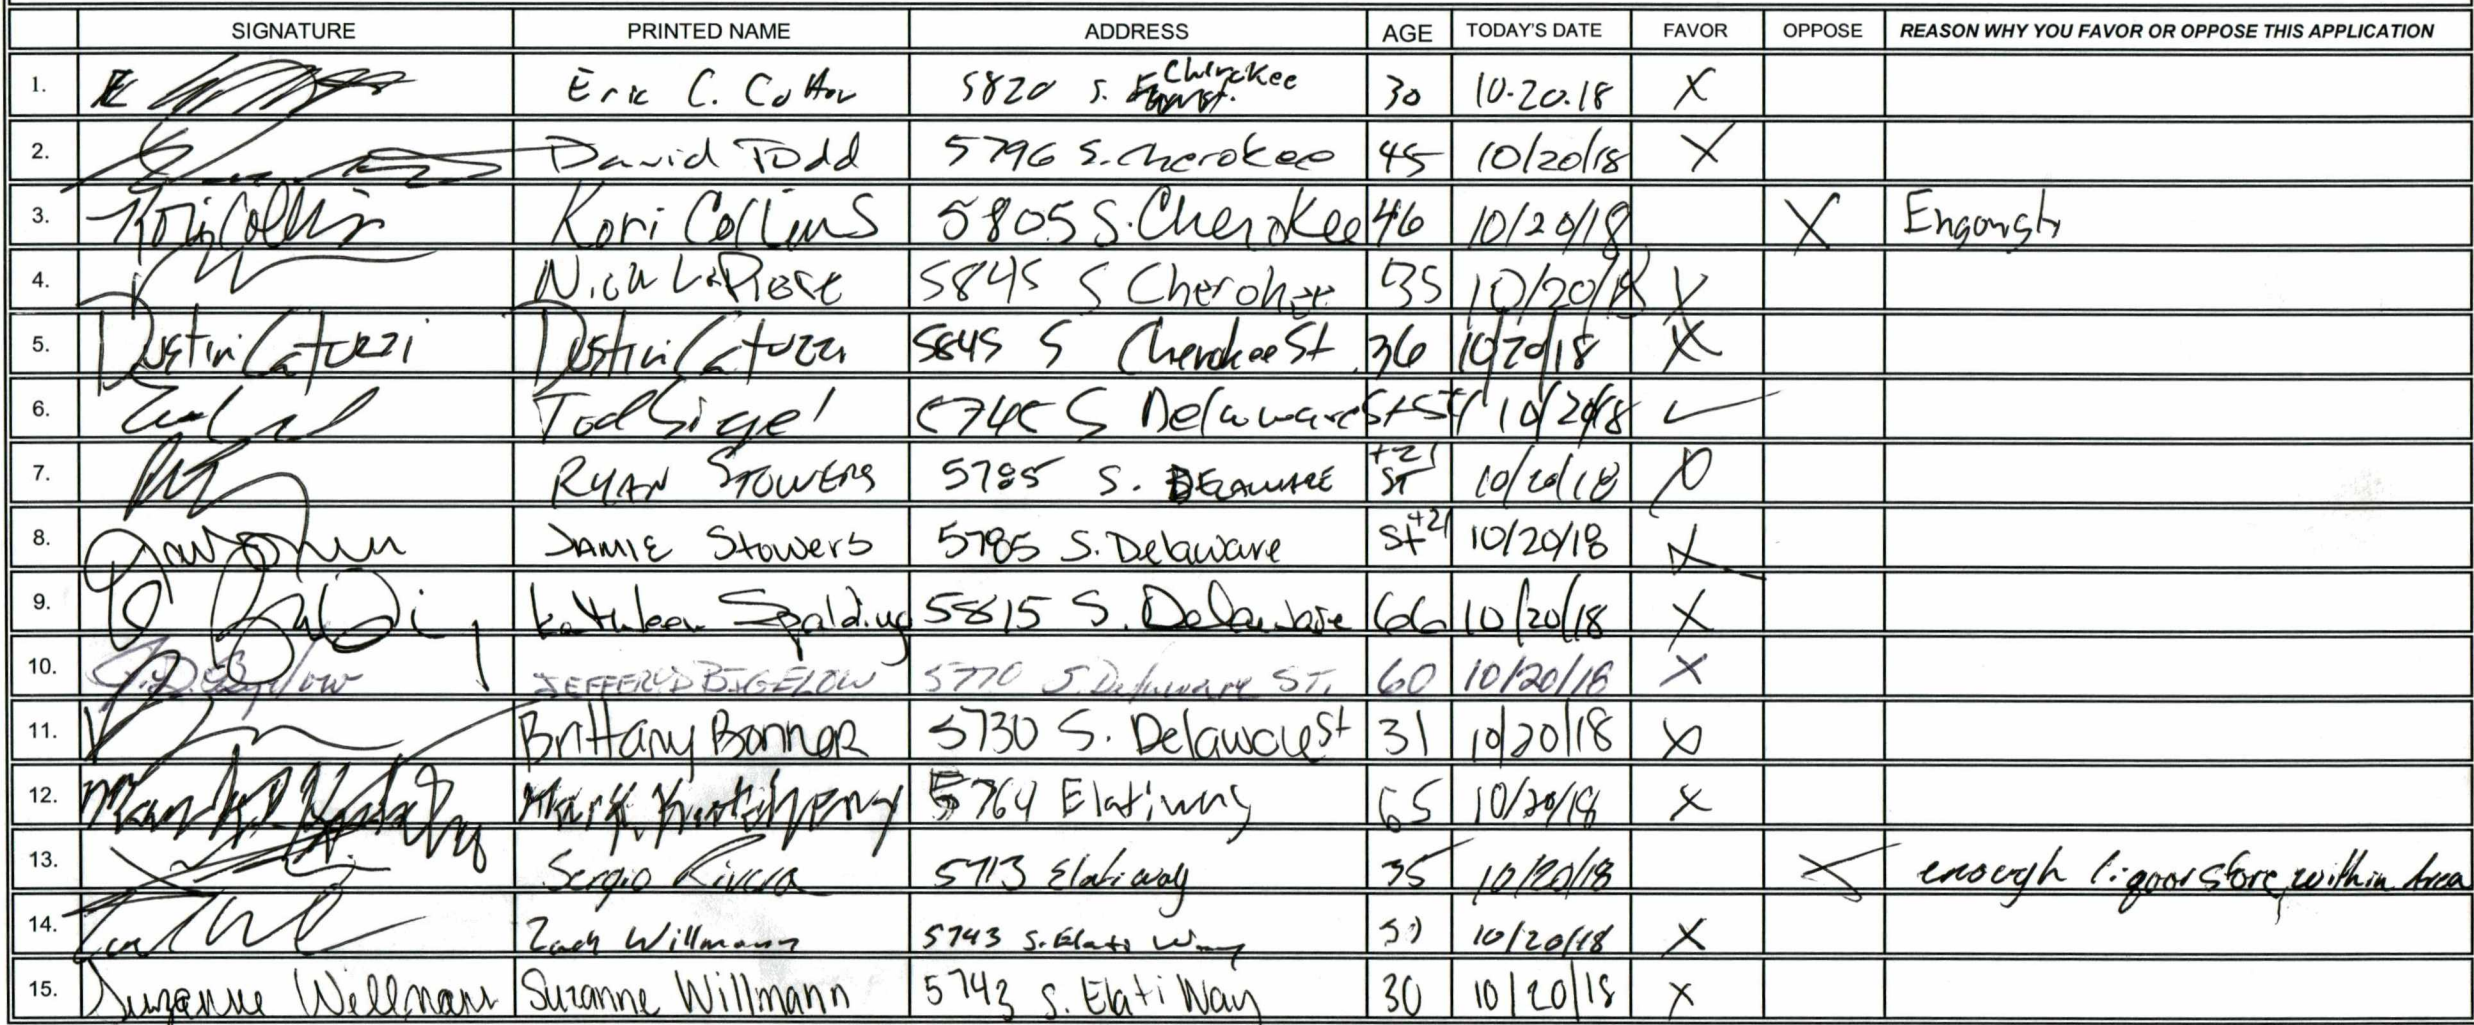 SIGNATURE PRINTED NAME ADDRESS AGE TODAY'S DATE FAVOR OPPOSE REASON WHY YOU FAVOR OR OPPOSE THIS APPLICATION
1. Eric C. Cotton 5820 S. Cherokee 30 10.20.18 X
2. David Todd 5796 S. Cherokee 45 10/20/18 X
3. Kori Collins Kori Collins 5805 S. Cherokee 46 10/20/18 X
4. Nick LaRose 5845 S Cherokee 35 10/20/18 X
5. Dustin Catuzzi Dustin Catuzzi 5845 S Cherokee St. 36 10/20/18 X
6. Tod Siegel S Delaware St 10/20/18 ✓
7. RYAN STOWERS 5785 S. DELAWARE ST +21 10/20/18 X
8. JAMIE Stowers 5785 S. Delaware St +21 10/20/18 X
9. Kathleen Spalding 5815 S. Delaware 66 10/20/18 X
10. JEFFERY D BIGELOW 5770 S. Delaware ST. 60 10/20/18 X
11. Brittany Bonner 5730 S. Delaware St 31 10/20/18 X
12. Mark 5764 Elati way 65 10/20/18 X
13. Sergio Rivera 5713 Elati way 35 10/20/18 X enough liquor store within Area
14. Zach Willmann 5743 S. Elati Way 10/20/18 X
15. Suzanne Willmann Suzanne Willmann 5743 S. Elati Way 30 10/20/18 X